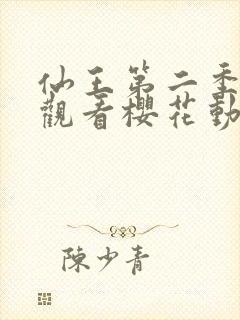 仙王第二季
觀看櫻花動
陳少青